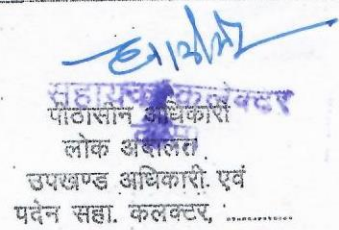 सहायक कलेक्टर
पीठासीन अधिकारी
लोक अदालत
उपखण्ड अधिकारी. एवं
पदेन सहा. कलक्टर, ............